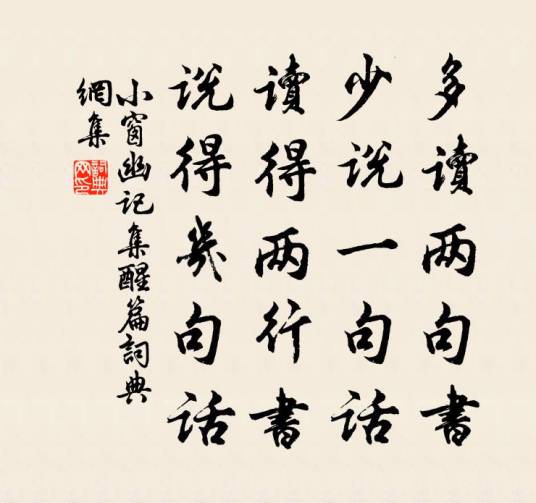 多讀两句書
少说一句话
讀得两行書
说得幾句话
小窗幽记集醒篇詞典
網集
詞典網印